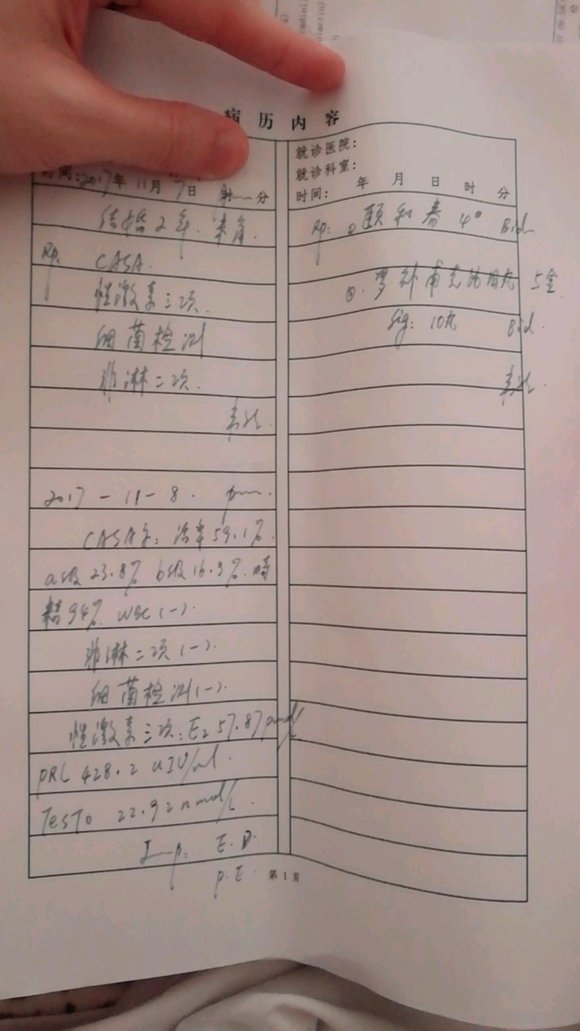 病历内容
时间:2017年11月7日 时 分
结婚2年,未育.
Rp. CASA.
性激素三项.
细菌检测
非淋二项.
2017-11-8. pm.
CASA示:活率59.1%.
a级23.8% b级16.9%. 畸
精94%. WBC(-).
非淋二项(-).
细菌检测(-).
性激素三项:E2 57.87 pmol/L
PRL 428.2 uIU/ml.
TESTO 22.92 nmol/L.
Imp: E.D.
P.E.
第1页
就诊医院:
就诊科室:
时间: 年 月 日 时 分
Rp: ① 颐和春 4# Bid
②. 5盒
Sig: 10丸 Bid.